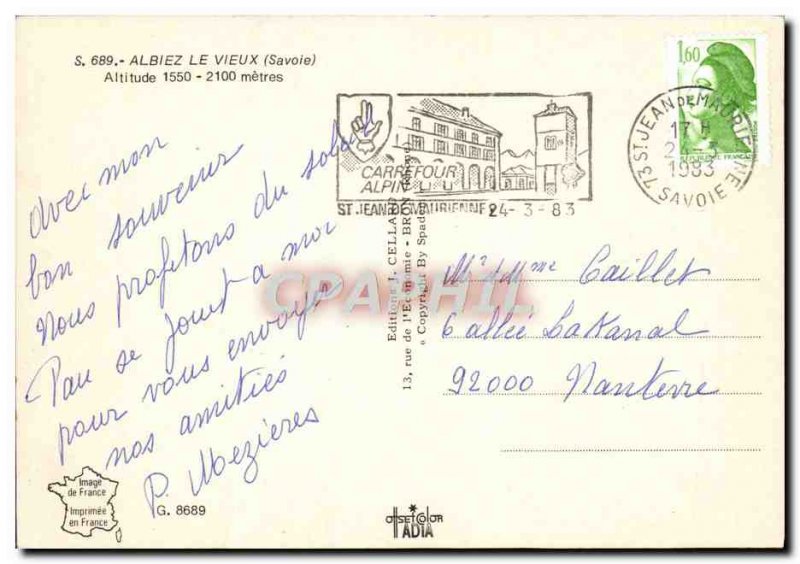 S. 689.- ALBIEZ LE VIEUX (Savoie)
Altitude 1550 - 2100 mètres
1,60
73 ST JEAN DE MAURIENNE
17 H
1983
SAVOIE
CARREFOUR
ALPIN
ST JEAN DE MAURIENNE 24- 3 - 83
avec mon
bon souvenir
Nous profitons du soleil
Pau se joint a moi
pour vous envoyer
nos amitiés
P. Mezières
Editions J. CELLARD
13, rue de l'Economie - BRON
« Copyright By Spadem »
CPAPHIL
Mr et Mme Caillet
6 allée Lakanal
92000 Nanterre
Image
de France
Imprimée
en France
G. 8689
offset Color
ADIA